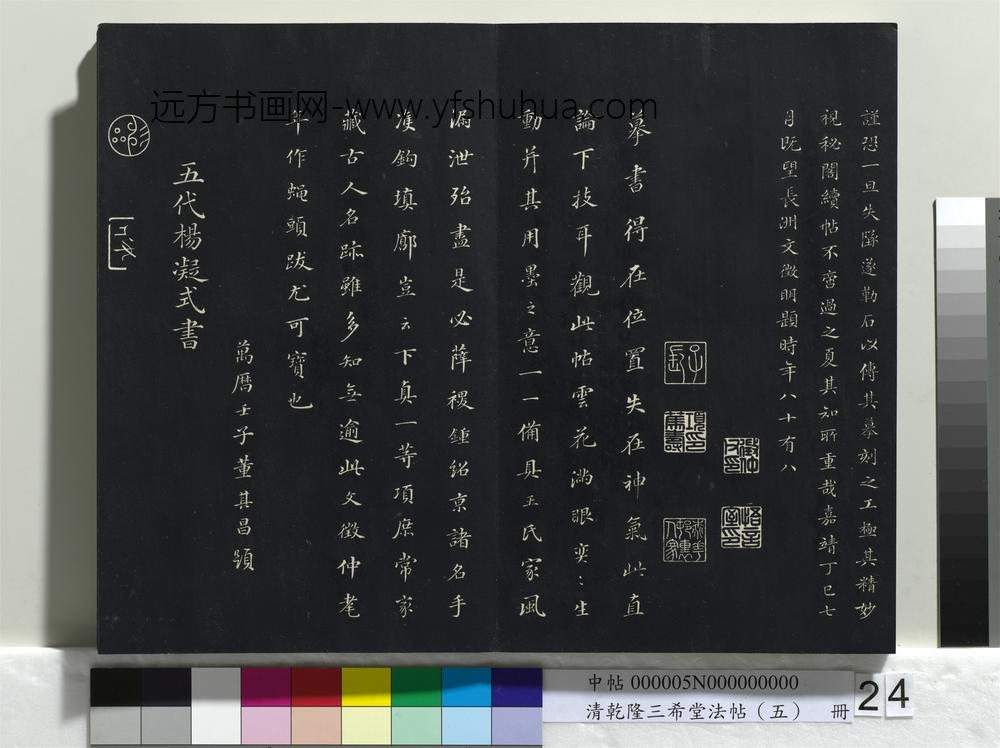 謹恐一旦失墜遂勒石以傳其摹刻之工極其精妙
視秘閣續帖不啻過之夏其知所重哉嘉靖丁巳七
月既望長洲文徵明題時年八十有八
摹書得在位置失在神氣此直
論下技耳觀此帖雲花滿眼奕〻生
動并其用墨之意一一備具王氏家風
漏泄殆盡是必薛稷鍾紹京諸名手
雙鉤填廓豈云下真一等項庶常家
藏古人名跡雖多知無逾此文徵仲耄
年作蠅頭跋尤可寶也
萬曆壬子董其昌題
五代楊凝式書
远方书画网-www.yfshuhua.com
中帖 000005N000000000
清乾隆三希堂法帖（五） 冊
24